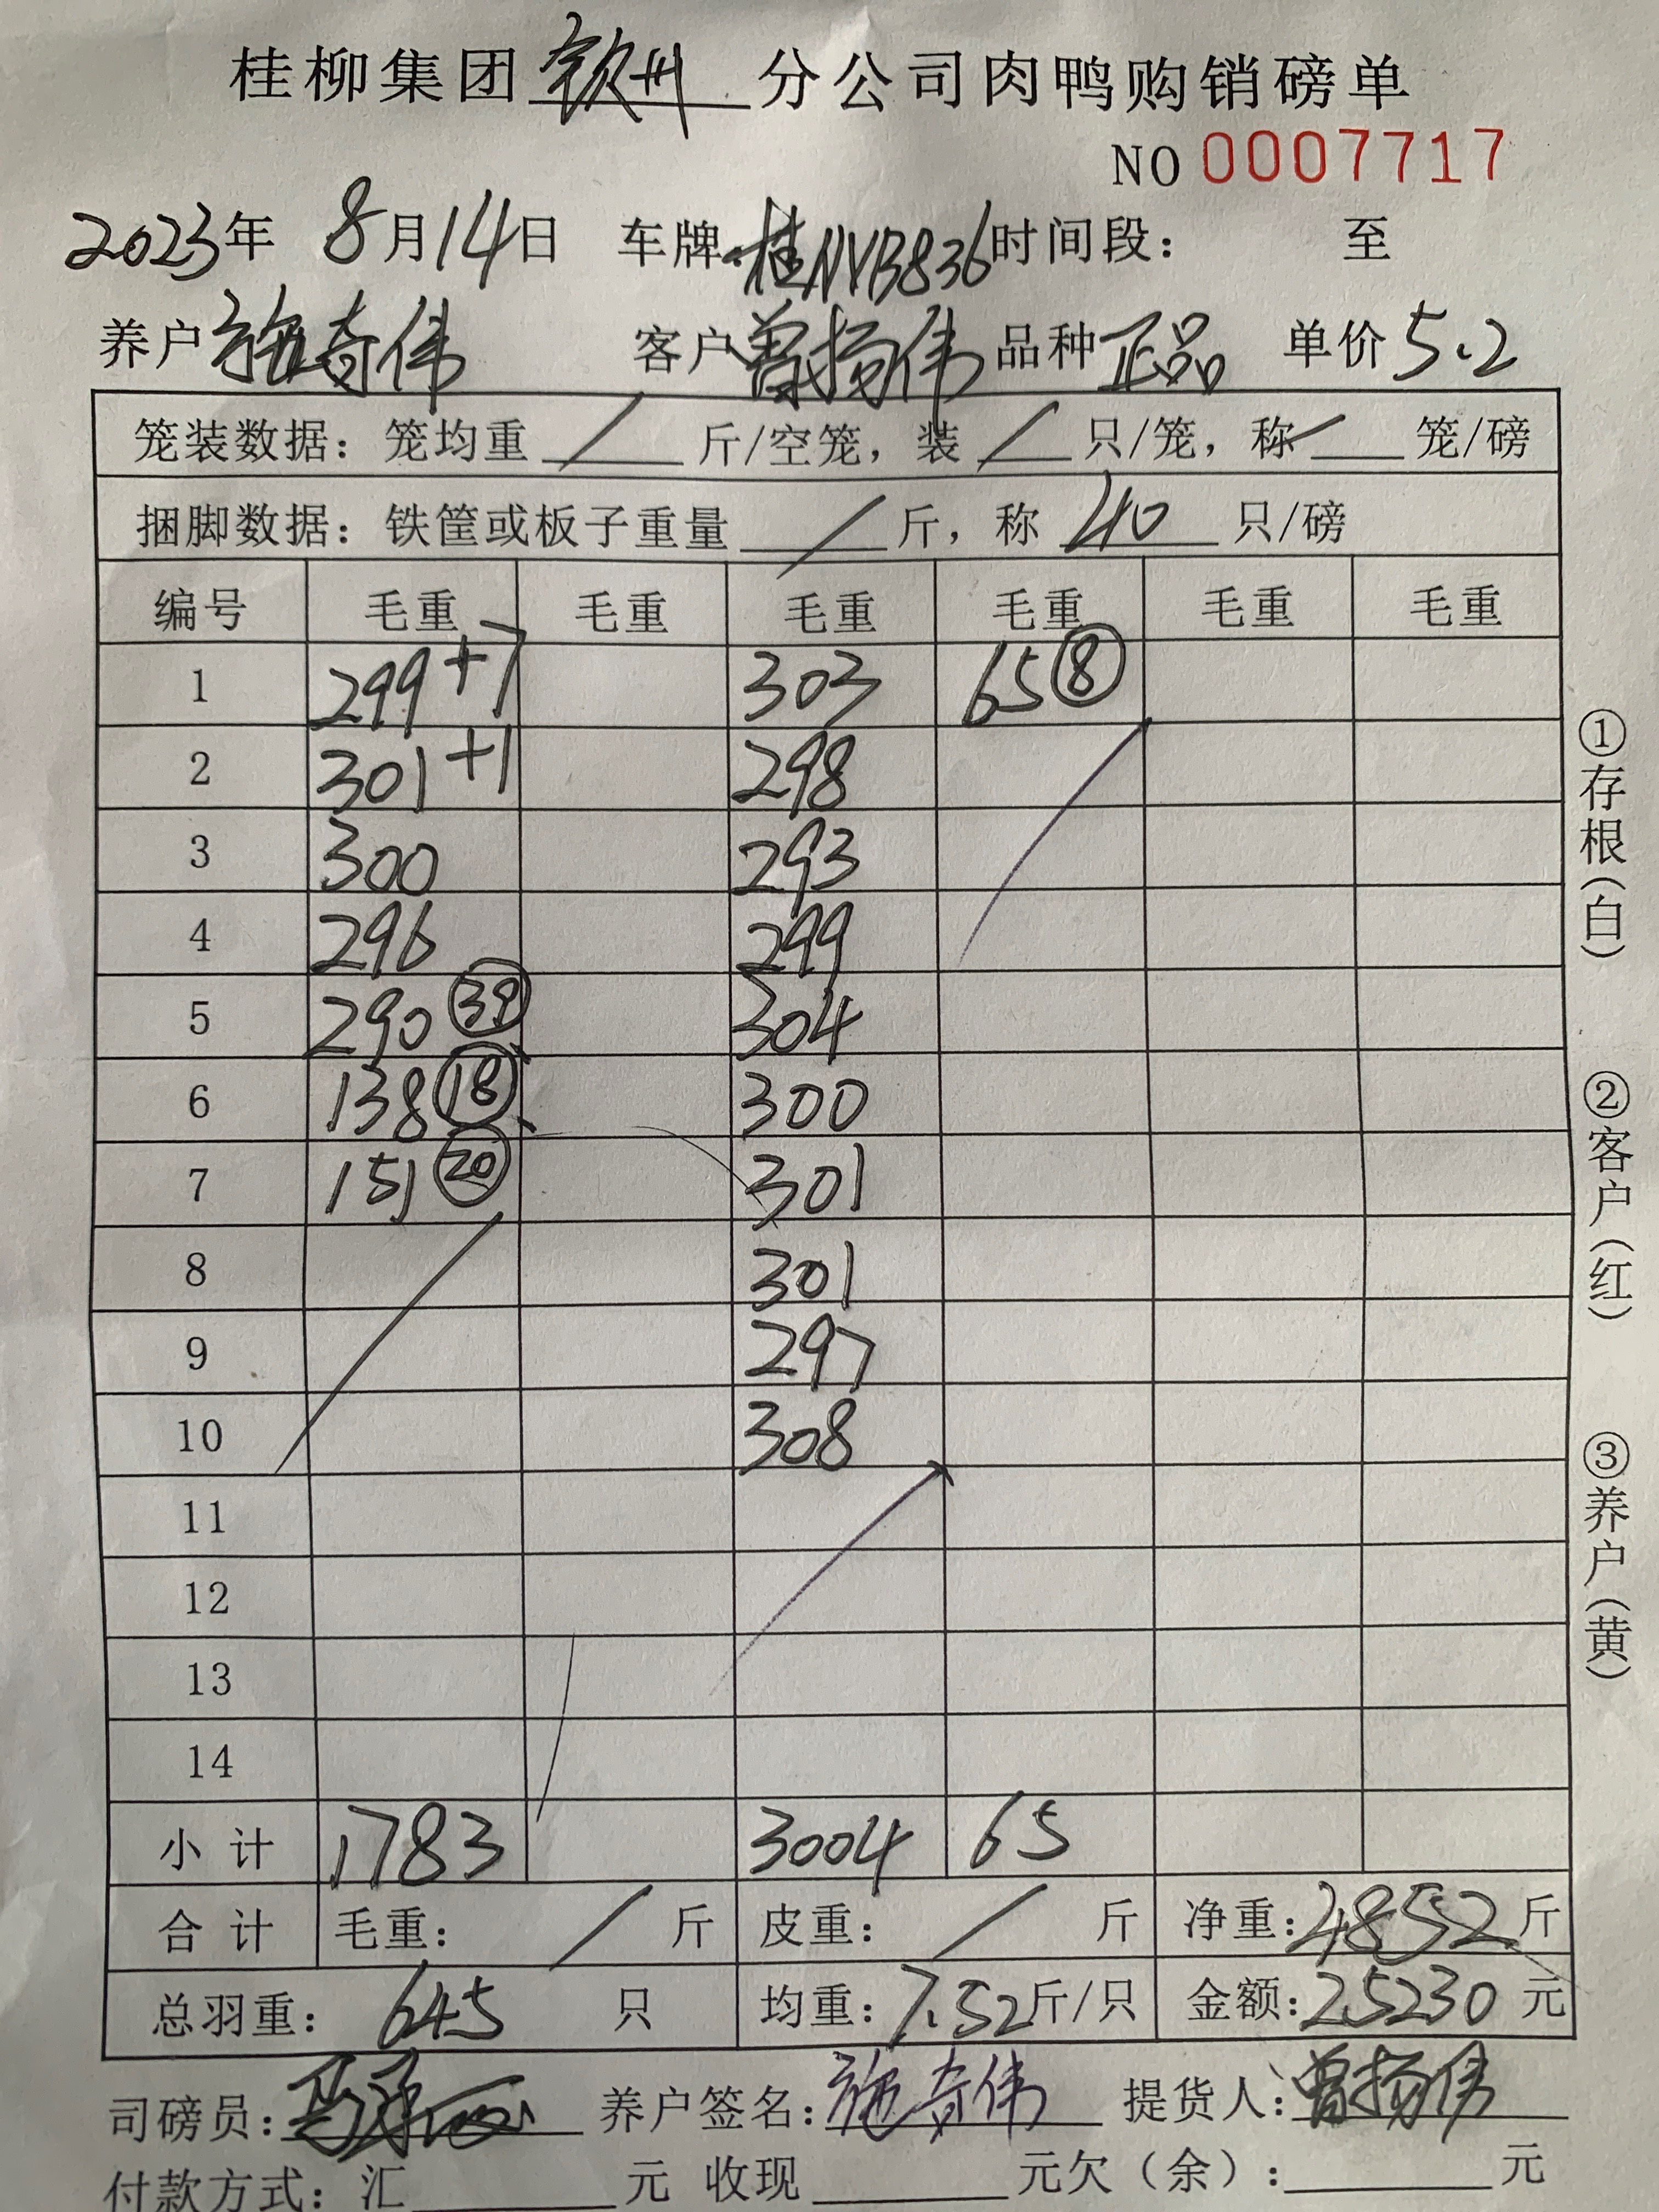 桂柳集团钦州分公司肉鸭购销磅单
NO 0007717
2023年 8月14日 车牌:桂NYB836时间段： 至
养户施奇伟 客户曾扬伟 品种正品 单价5.2
笼装数据：笼均重 / 斤/空笼，装 / 只/笼，称 / 笼/磅
捆脚数据：铁筐或板子重量 / 斤，称 40 只/磅
编号 毛重 毛重 毛重 毛重 毛重 毛重
1 299+7 303 65⑧
2 301+1 298
3 300 293
4 296 299
5 290㊴ 304
6 138⑱ 300
7 151⑳ 301
8 301
9 297
10 308
11
12
13
14
小计 1783 3004 65
合计 毛重： / 斤 皮重： / 斤 净重：4852斤
总羽重： 645 只 均重：7.52斤/只 金额：25230元
司磅员： 养户签名：施奇伟 提货人：曾扬伟
付款方式：汇 元 收现 元欠（余）： 元
①存根（白）
②客户（红）
③养户（黄）